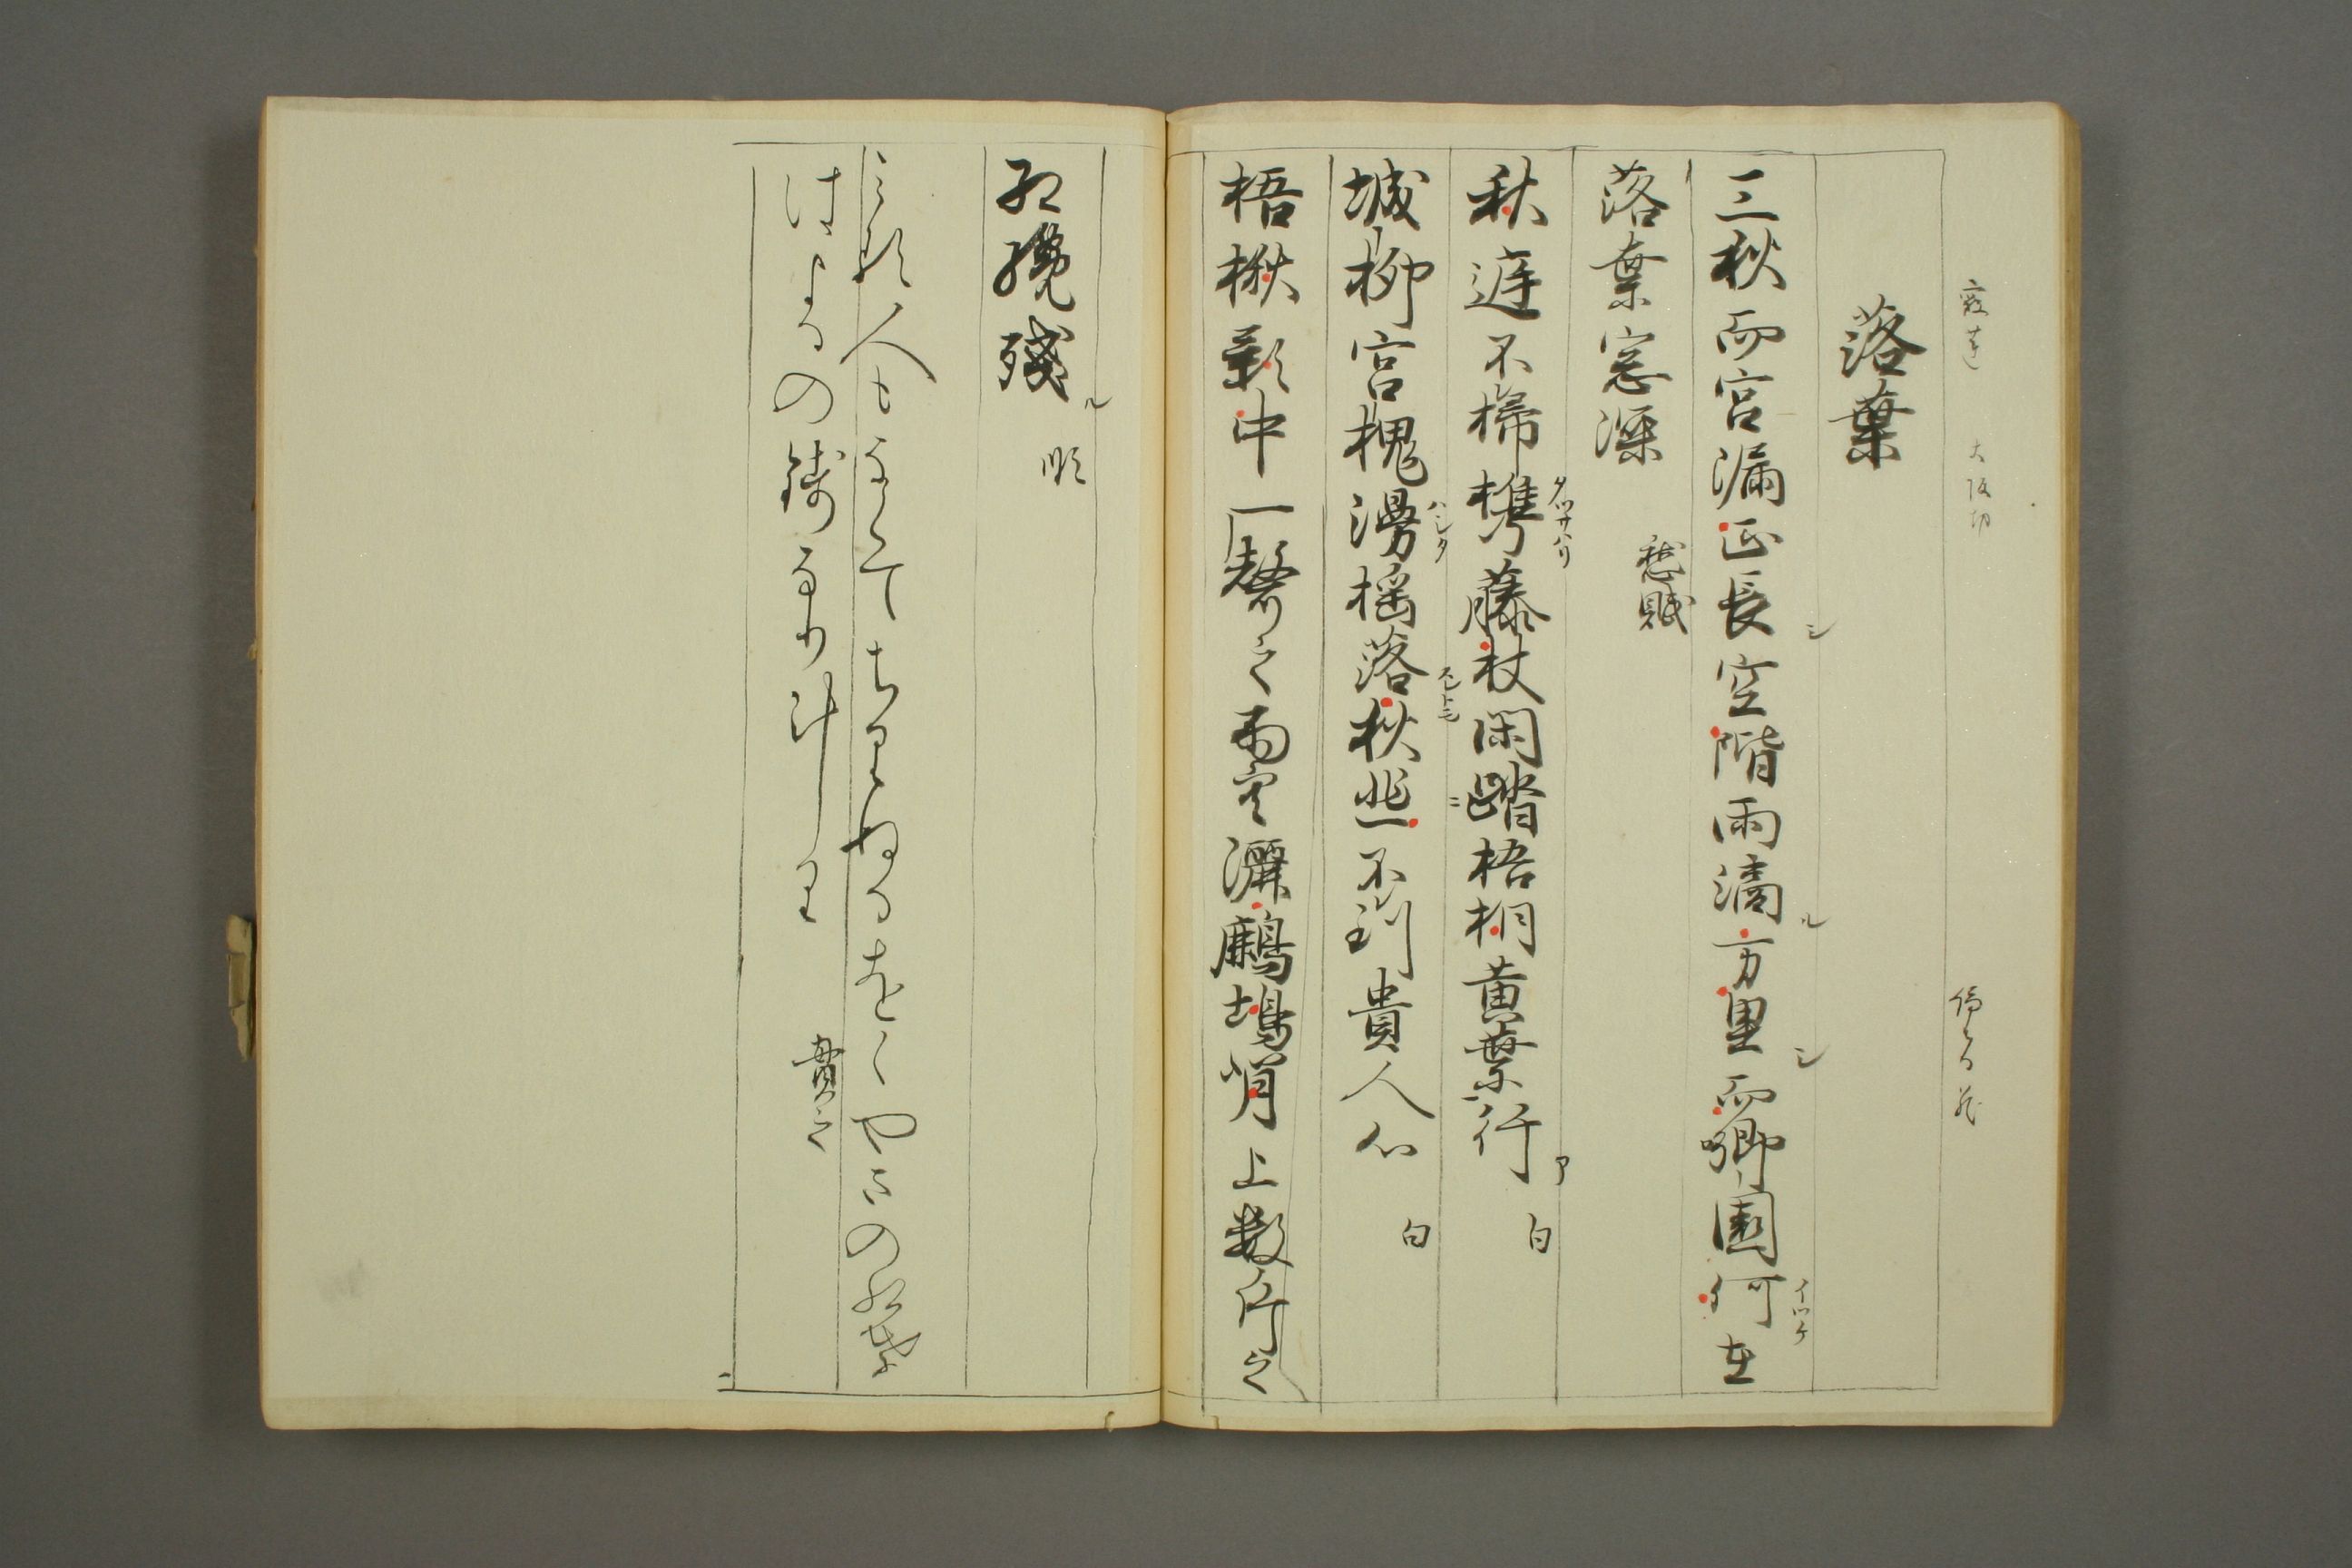 寂蓮 大阪切
落葉
三秋而宮漏正長空階雨滴万里而郷園何在
落葉窓深 愁賦
秋庭不掃携藤杖閑踏梧桐黄葉行 白
城柳宮槐漫揺落秋悲不到貴人心 白
梧楸影中一聲之雨空灑鷓鴣背上数片之
紅纔残 順
みる人もなくてちりぬるおくやまの紅葉
はよるの錦なり計り 貫之